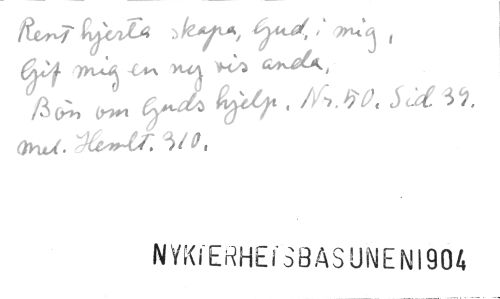 Rent hjerta skapa, Gud, i mig,
Gif mig en ny vis anda,
Bön om Guds hjelp. Nr. 50. Sid. 39.
mel. Hemlt. 310.
NYKTERHETSBASUNEN1904